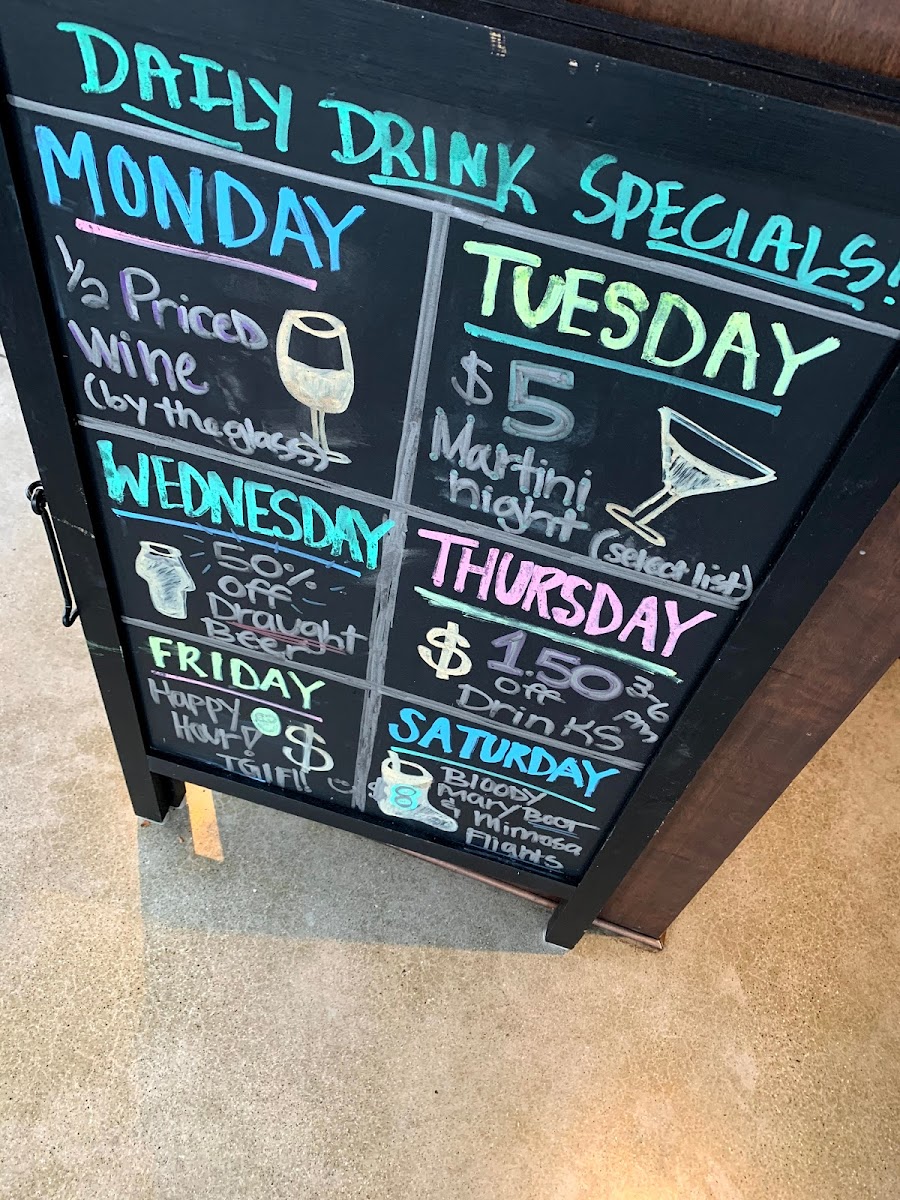 DAILY DRINK SPECIALS!
MONDAY
1/2 Priced
Wine
(by the glass)
TUESDAY
$5
Martini
night
(select list)
WEDNESDAY
50%
off
Draught
Beer
THURSDAY
$1.50
off
Drinks
3-6
pm
FRIDAY
Happy
Hour!
$
TGIF!!
SATURDAY
$8
Bloody
Mary Boot
& Mimosa
Flights